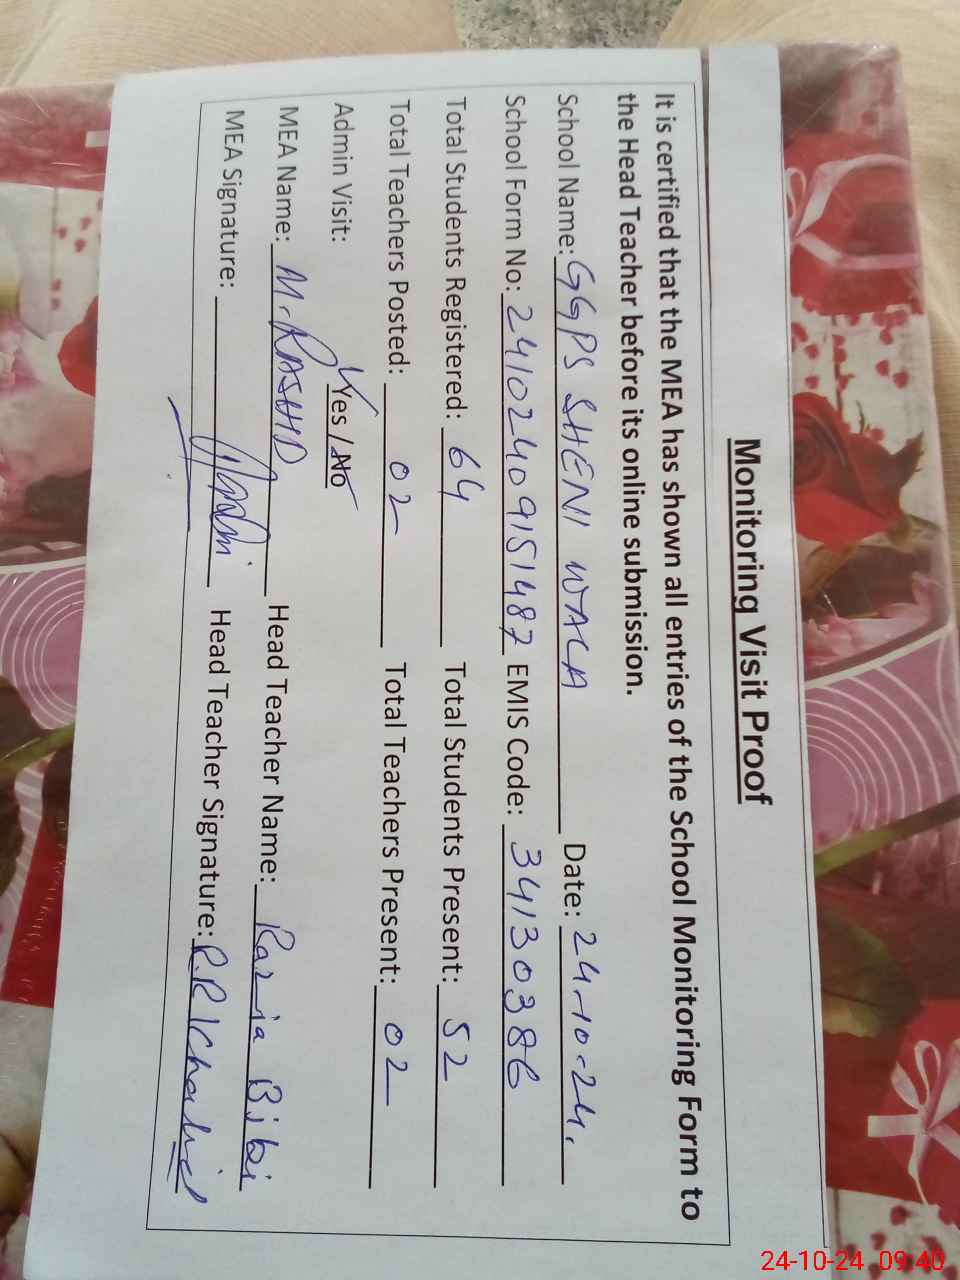 Monitoring Visit Proof
It is certified that the MEA has shown all entries of the School Monitoring Form to
the Head Teacher before its online submission.
School Name: GGPS SHENI WALA Date: 24-10-24.
School Form No: 24102409151487 EMIS Code: 34130386
Total Students Registered: 64 Total Students Present: 52
Total Teachers Posted: 02 Total Teachers Present: 02
Admin Visit: Yes / No
MEA Name: M. RASHID Head Teacher Name: Razia Bibi
MEA Signature: Head Teacher Signature:
24-10-24 09:40